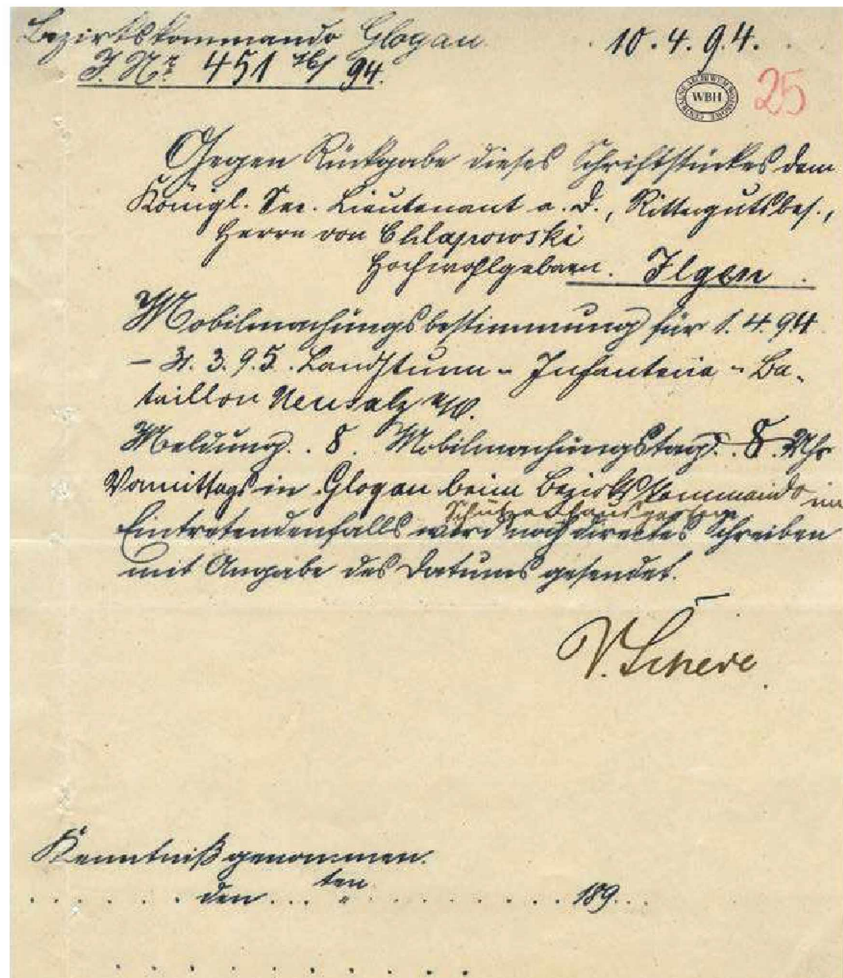 Bezirkskommando Glogau. 10.4.94.
J. Nr. 451 /94.
WBH
25
Gegen Rückgabe dieses Schriftstückes dem
Königl. Sec. Lieutenant a. D., Rittergutsbes.,
Herrn von Chlapowski
Hochwohlgeboren. Ilgen.
Mobilmachungsbestimmung für 1.4.94
– 31.3.95. Landsturm-Infanterie-Ba-
taillon Neusalz
Meldung. 8. Mobilmachungstag. 8. Uhr
Vormittags in Glogau beim Bezirkskommando im
Schützenhausgarten
Eintretendenfalls wird noch directes Schreiben
mit Angabe des Datums gesendet.
V. Scheve
Kenntniß genommen.
. . . . . . den . . . ten . . . . . . . . 189. . .